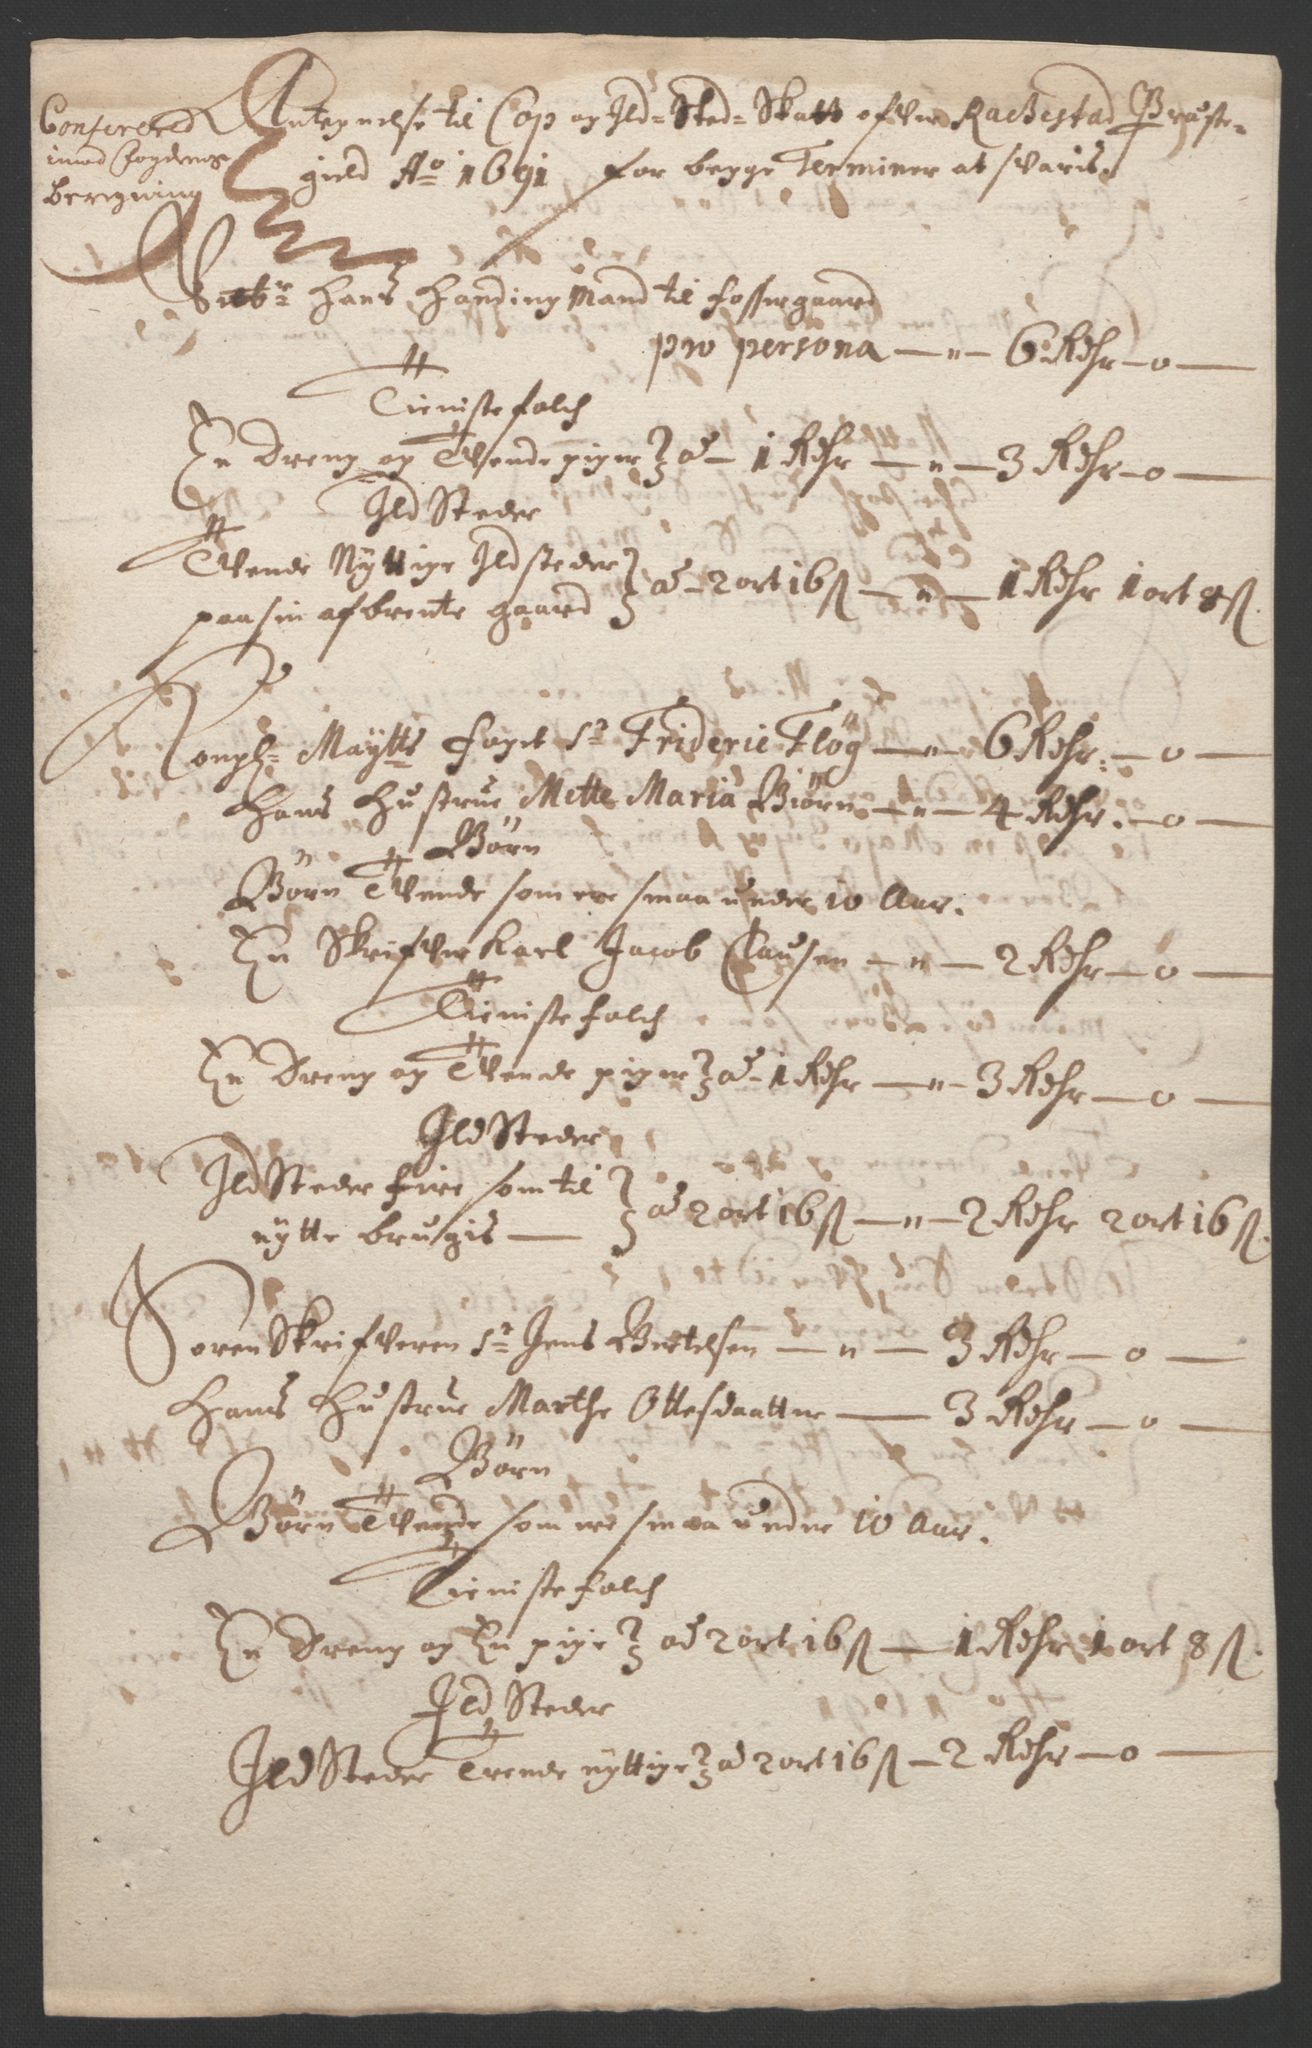 Confereret
imod fogdens
beregning
Antegnelse til Cop og Ild-Sted-Skatt ofver Rachestad Præste-
gield Ao 1691 for begge Terminer at svaris.
Hans Handingmand til fossergaard
pro persona — " — 6 Rdlr — o —
Tieniste folch
En dreng og Tvende piger ad 1 Rdlr — " — 3 Rdlr — o —
Ild Steder
Tvende Nyttige Ildsteder
paa sin afbrente gaard ad 2 ort 16 ß — " — 1 Rdlr 1 ort 8 ß.
Kongl: Maytts foget Sr Frideric Flög — " — 6 Rdlr: — o —
Hans Hustrue Mette Maria Biörn — " — 4 Rdlr. — o —
Börn
Börn Tvende som ere smaa under 10 Aar.
En Skrifver Karl Jacob Clausen — " — 2 Rdlr — o —
Tieniste folch
En dreng og Tvende piger ad 1 Rdlr — " — 3 Rdlr — o —
Ild Steder
Ild Steder fire som til
nytte brugis — ad 2 ort 16 ß — " — 2 Rdlr 2 ort 16 ß.
Soren Skrifveren Sr Jens Bertelsen — " — 3 Rdlr — o —
Hans Hustrue Marthe Ottesdaatter — 3 Rdlr — o —
Börn
Börn Tvende som ere smaa under 10 Aar.
Tieniste folch
En dreng og En pige ad 2 ort 16 ß — 1 Rdlr 1 ort 8 ß.
Ild Steder
Ild Steder Trende nyttige ad 2 ort 16 ß — 2 Rdlr — o —